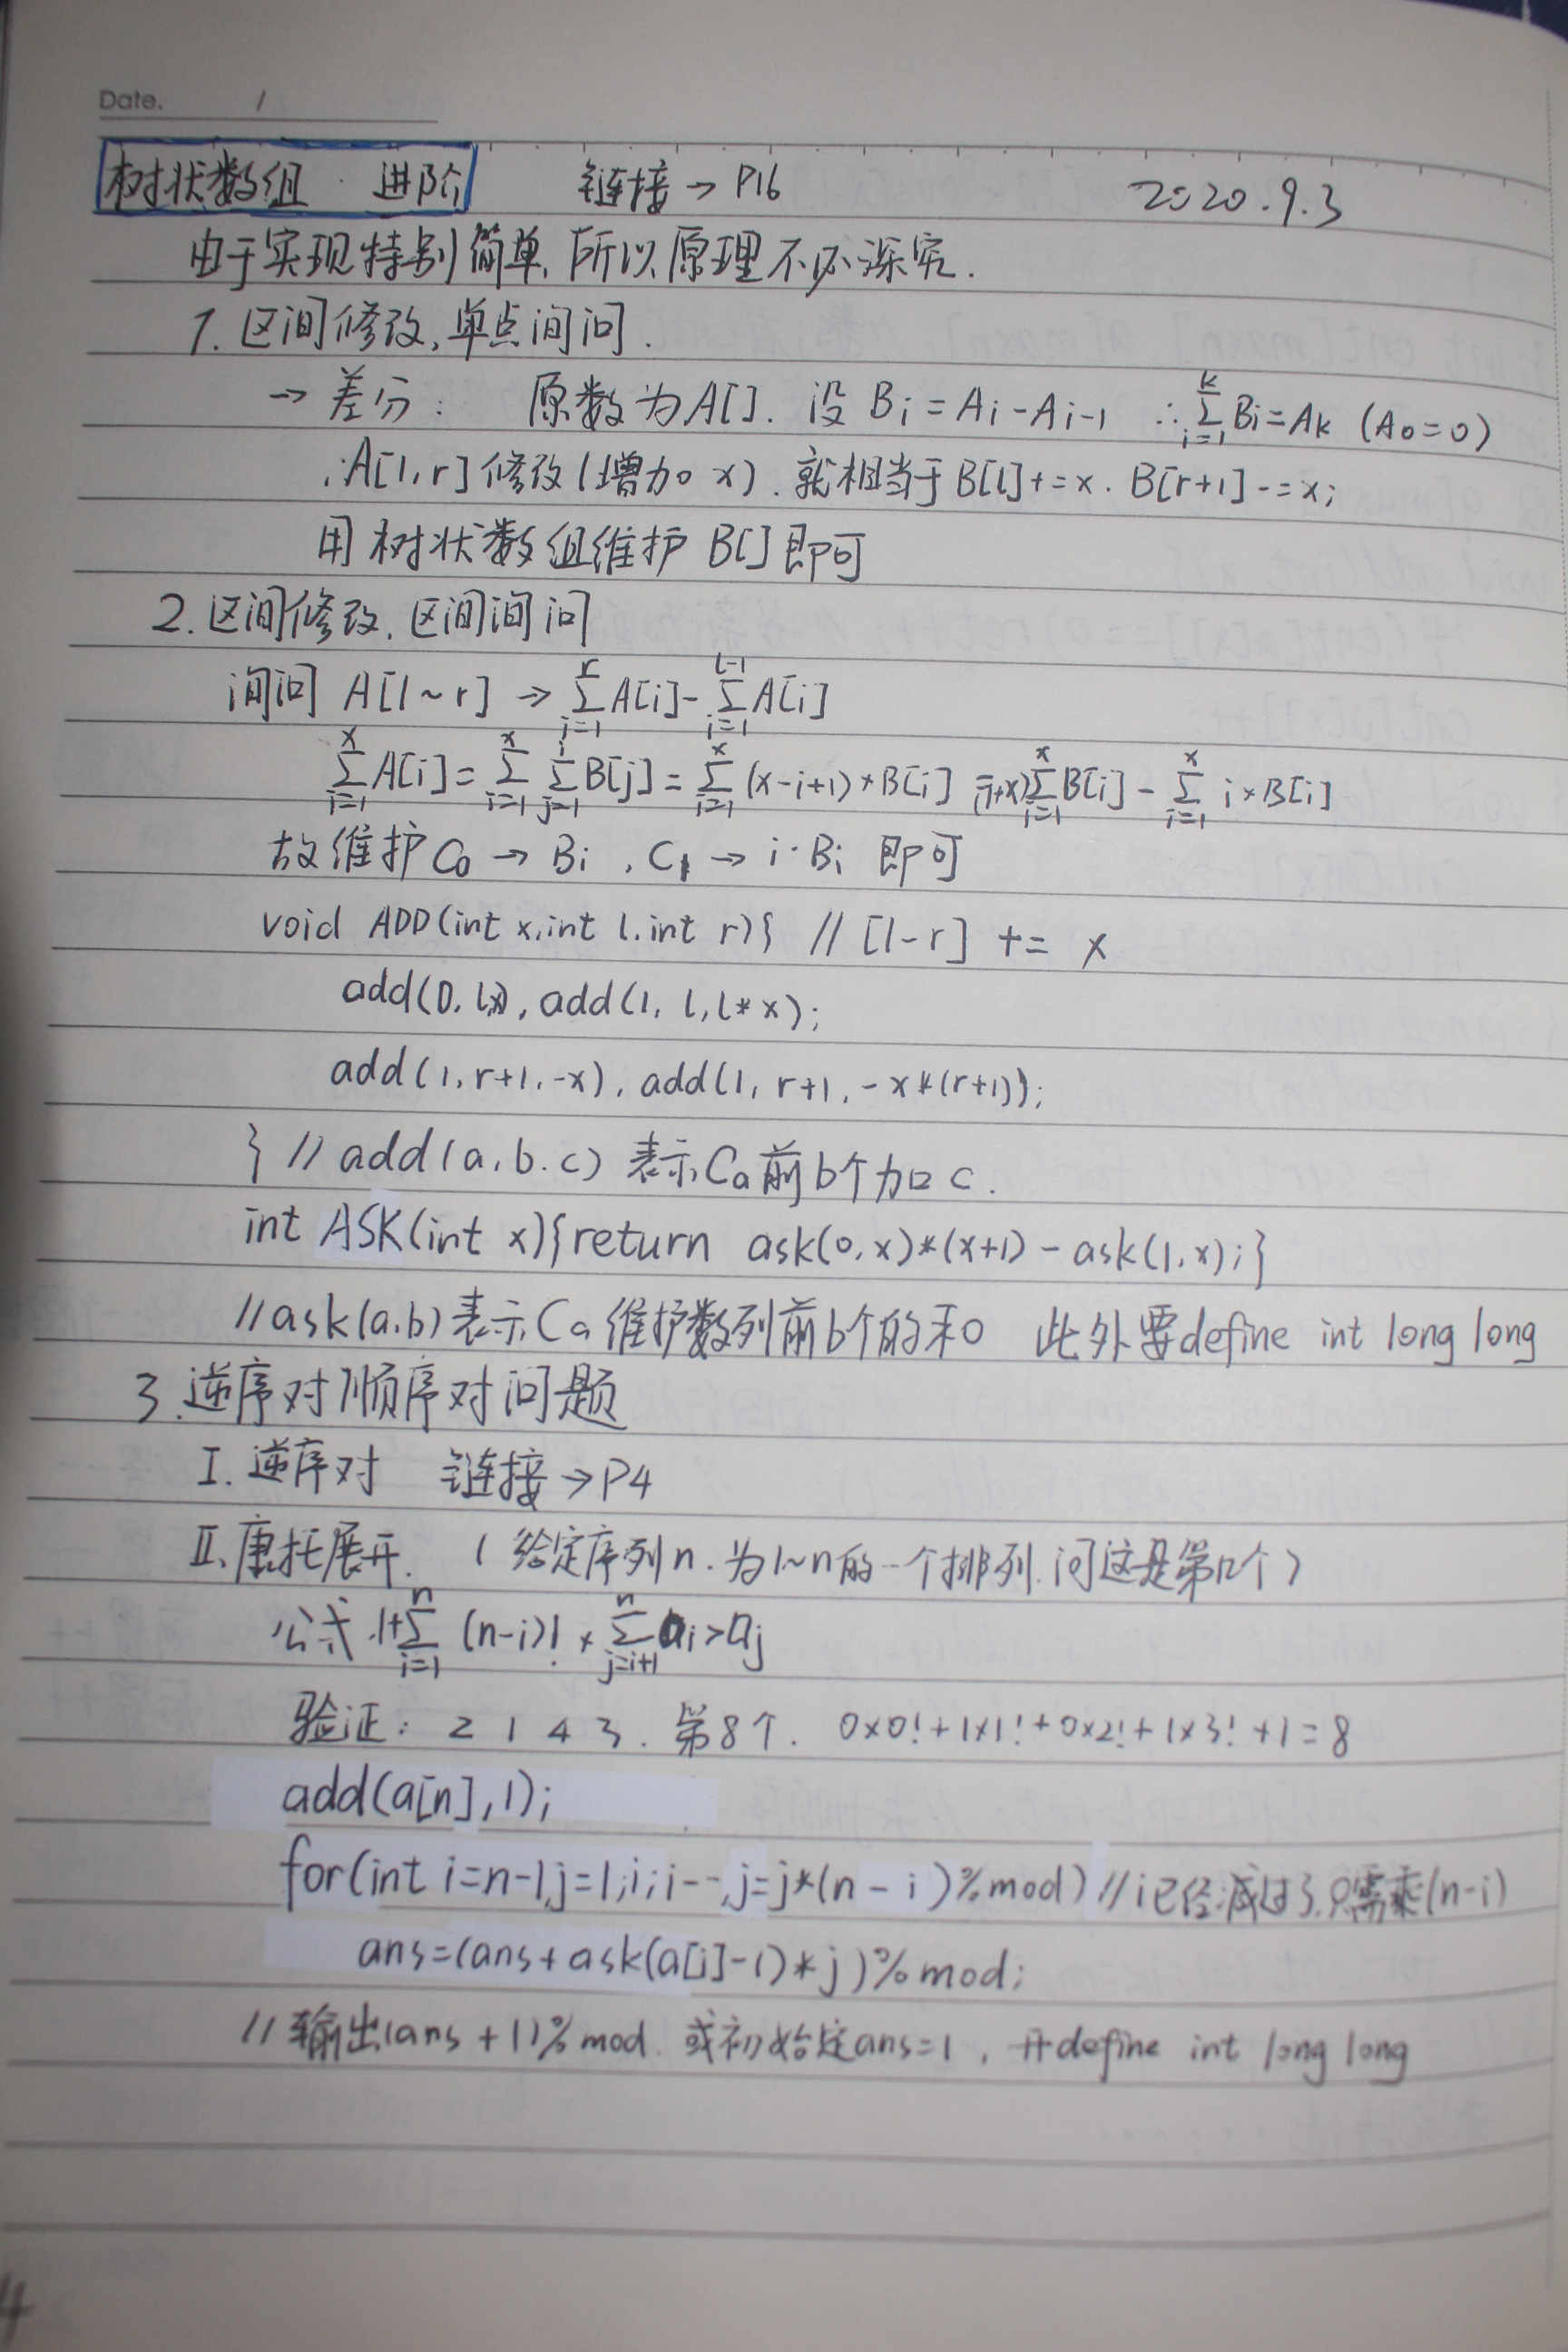 Date. /
树状数组·进阶 链接→P16 2020.9.3
由于实现特别简单,所以原理不必深究.
1.区间修改,单点询问.
→差分: 原数为A[].设Bi=Ai-Ai-1 ∴∑(i=1..k)Bi=Ak (A0=0)
∴A[l,r]修改(增加x).就相当于B[l]+=x.B[r+1]-=x;
用树状数组维护B[]即可
2.区间修改.区间询问
询问A[l~r]→∑(i=1..r)A[i]-∑(i=1..l-1)A[i]
∑(i=1..x)A[i]=∑(i=1..x)∑(j=1..i)B[j]=∑(i=1..x)(x-i+1)×B[i]=(1+x)∑(i=1..x)B[i]-∑(i=1..x)i×B[i]
故维护C0→Bi,C1→i·Bi即可
void ADD(int x,int l,int r){ //[l-r] += x
add(0,l,x),add(1,l,l*x);
add(1,r+1,-x),add(1,r+1,-x*(r+1));
} //add(a,b,c)表示Ca前b个加c.
int ASK(int x){return ask(0,x)*(x+1)-ask(1,x);}
//ask(a,b)表示Ca维护数列前b个的和 此外要define int long long
3.逆序对/顺序对问题
I.逆序对 链接→P4
II.康托展开. (给定序列n.为1~n的一个排列.问这是第几个)
公式.1+∑(i=1..n)(n-i)!×∑(j=i+1..n)ai>aj
验证: 2 1 4 3.第8个. 0×0!+1×1!+0×2!+1×3!+1=8
add(a[n],1);
for(int i=n-1,j=1;i;i--,j=j*(n-i)%mod) //i已经减过了,只需乘(n-i)
ans=(ans+ask(a[i]-1)*j)%mod;
//输出(ans+1)%mod.或初始定ans=1,开define int long long
4